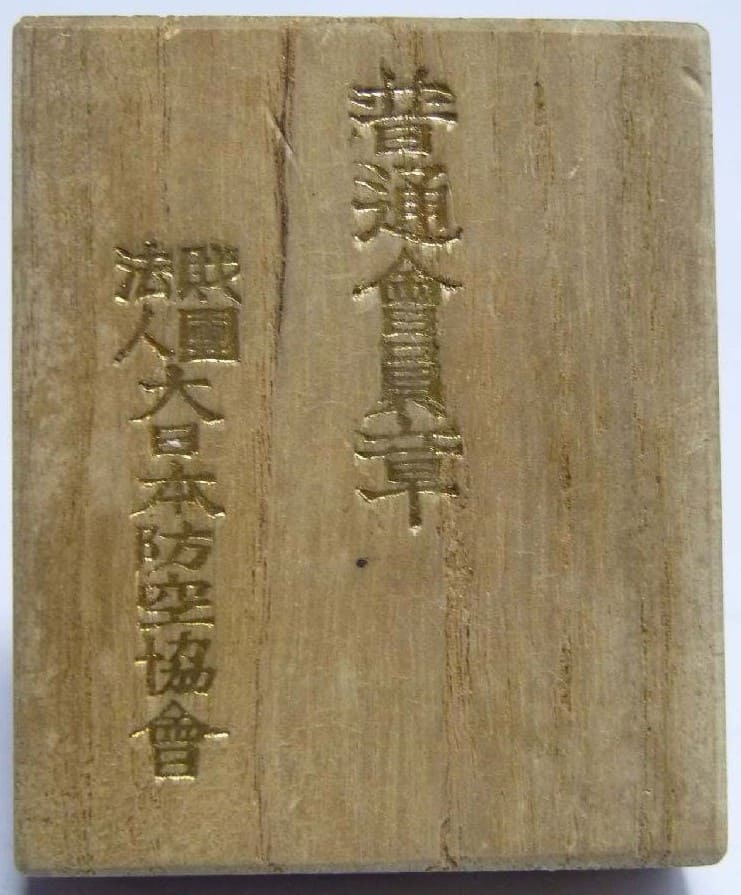 普通會員章
財團法人大日本防空協會